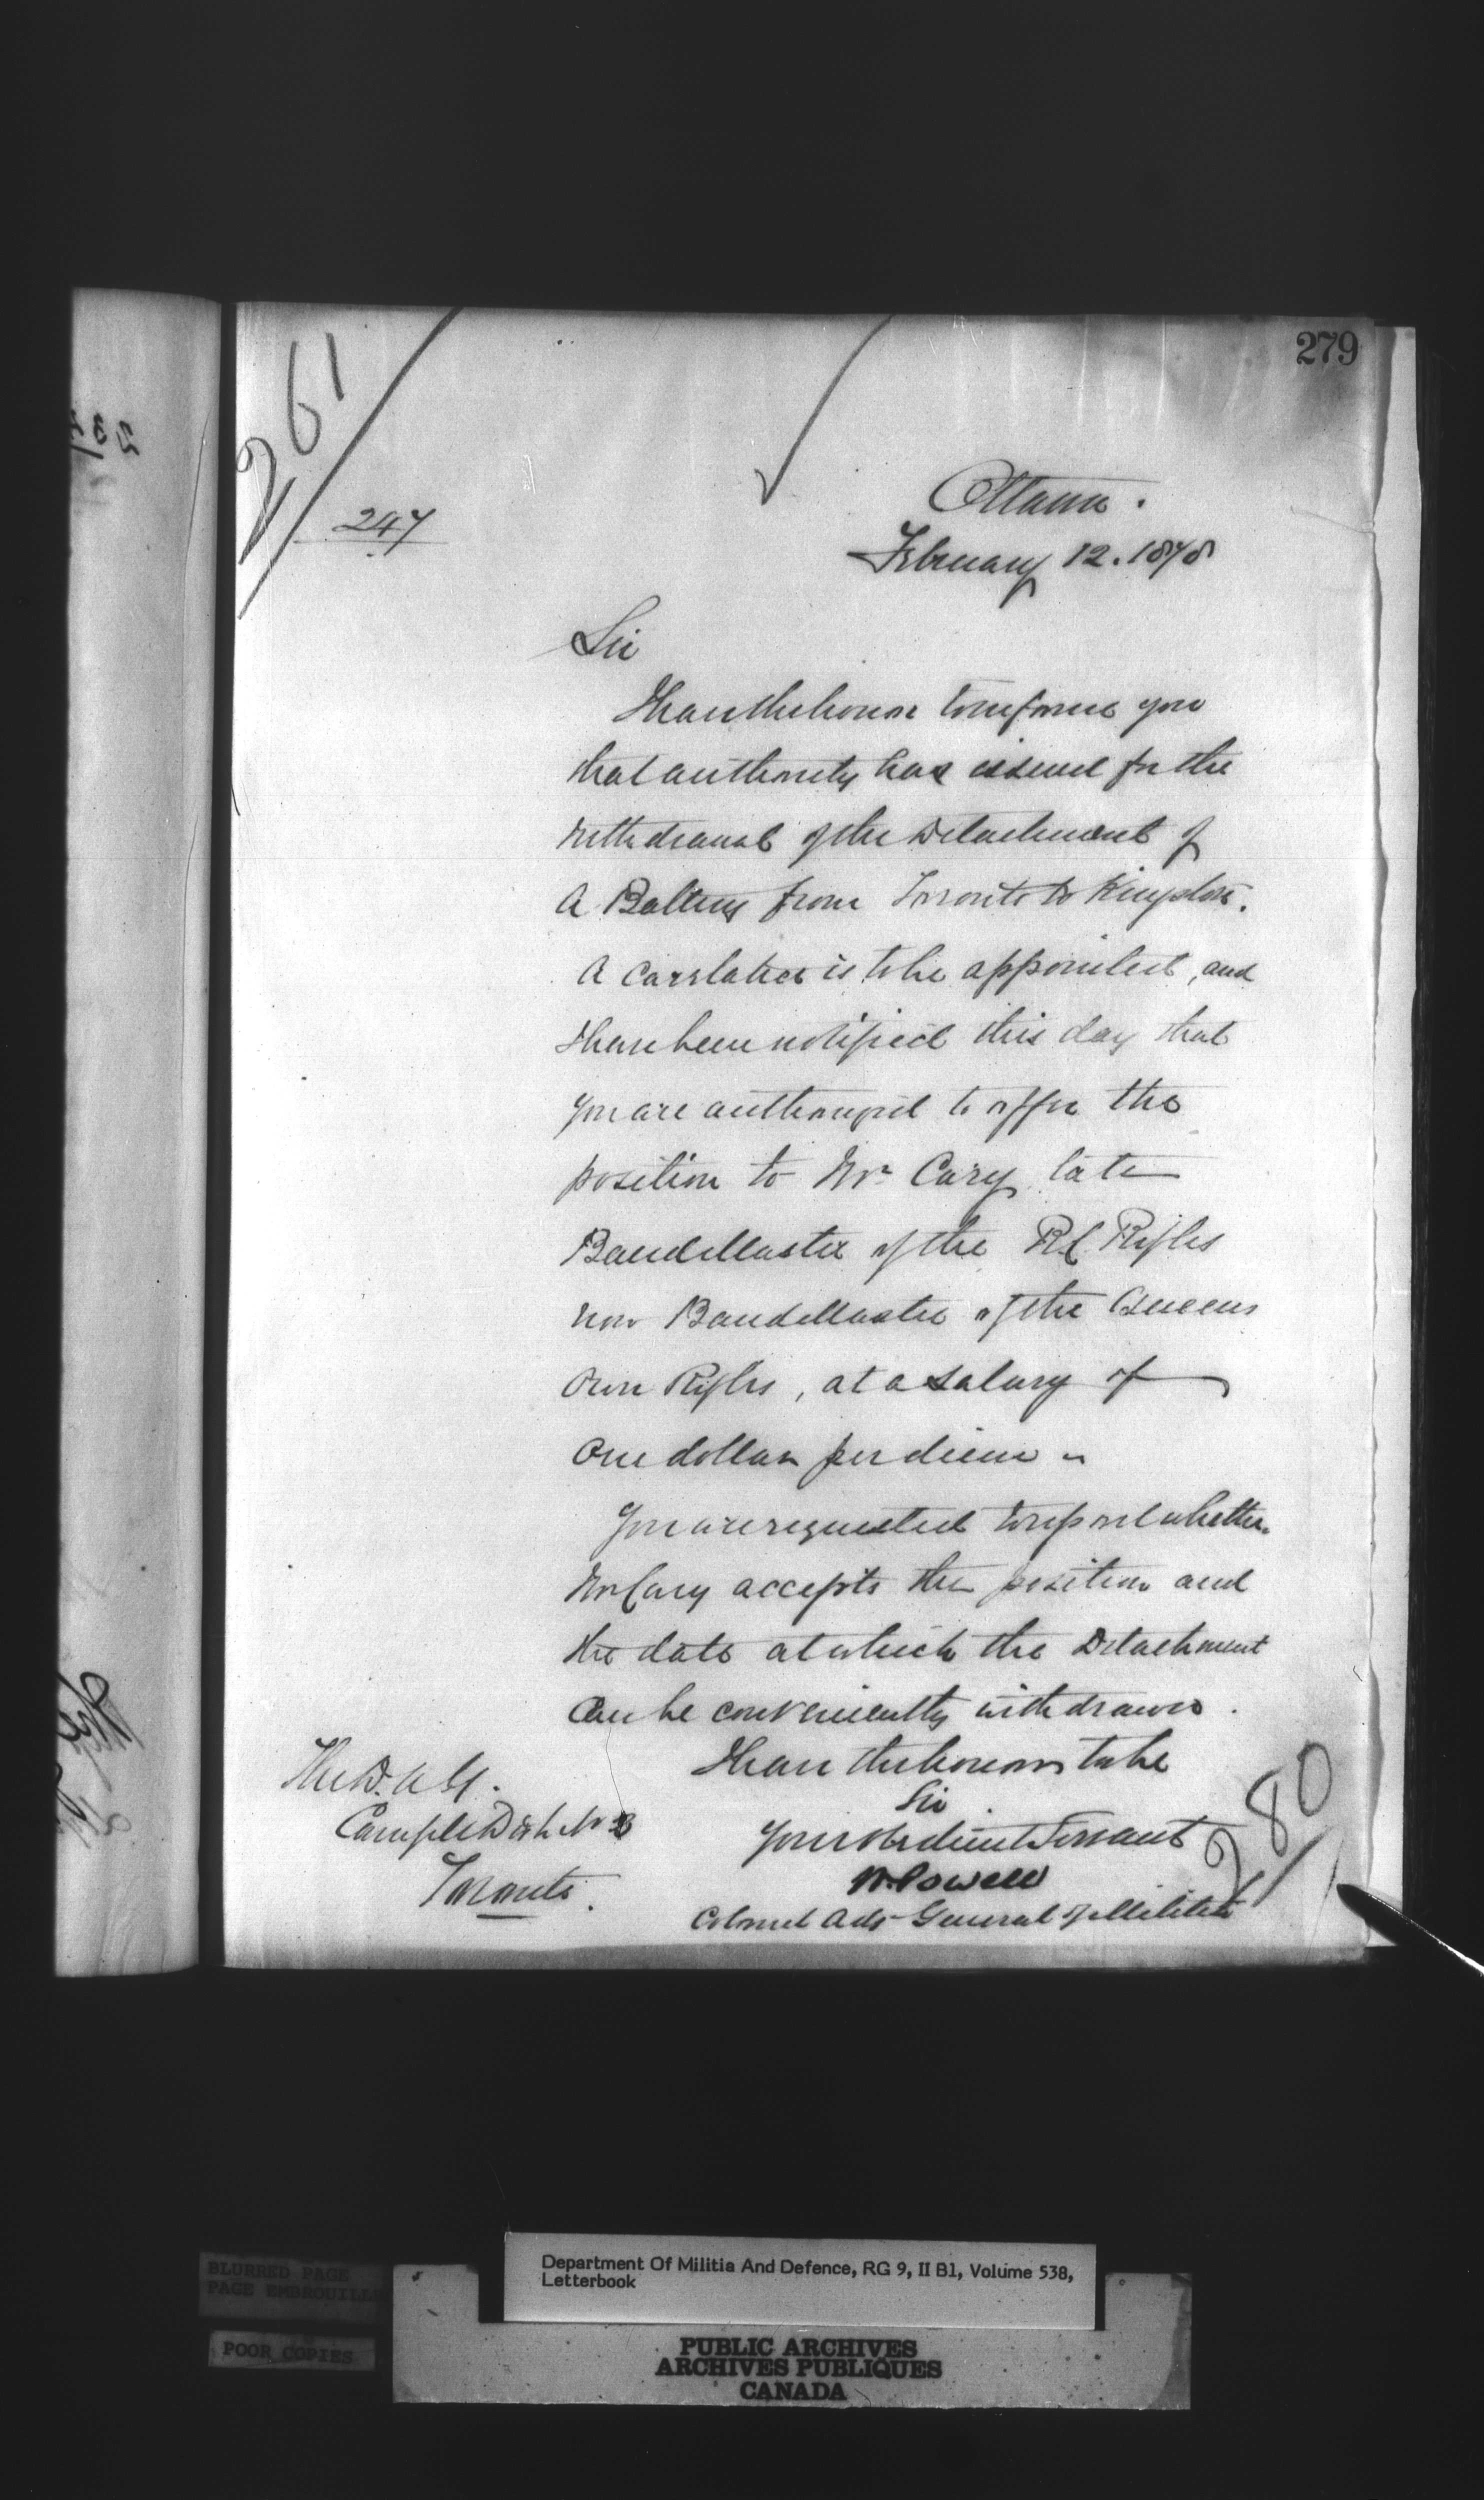 279
261
247
Ottawa.
February 12. 1878
Sir
I have the honor to inform you
that authority has issued for the
withdrawal of the Detachment of
A Battery from Toronto to Kingston.
A Caretaker is to be appointed, and
I have been notified this day that
you are authorized to offer the
position to Mr Carey late
Band Master of the R.C. Rifles
now Band Master of the Queens
Own Rifles, at a salary of
One dollar per diem
You are requested to report whether
Mr Carey accepts the position and
the date at which the Detachment
can be conveniently withdrawn.
I have the honor to be
Sir
Your obedient Servant
W. Powell
Colonel Adj General of Militia
The D. A. G.
Military Dist No 
Toronto.
280
Department Of Militia And Defence, RG 9, II B1, Volume 538,
Letterbook
BLURRED PAGE
PAGE EMBROUILLE
POOR COPIES
PUBLIC ARCHIVES
ARCHIVES PUBLIQUES
CANADA